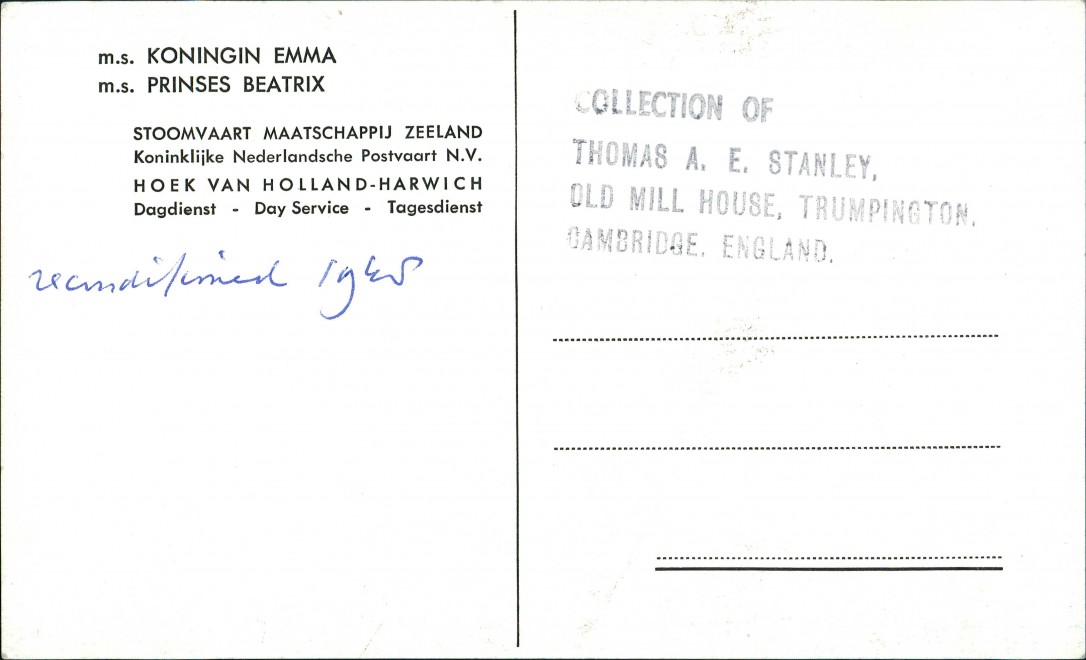 m.s. KONINGIN EMMA
m.s. PRINSES BEATRIX
STOOMVAART MAATSCHAPPIJ ZEELAND
Koninklijke Nederlandsche Postvaart N.V.
HOEK VAN HOLLAND-HARWICH
Dagdienst - Day Service - Tagesdienst
reconditioned 1948
COLLECTION OF
THOMAS A. E. STANLEY,
OLD MILL HOUSE, TRUMPINGTON.
CAMBRIDGE. ENGLAND.